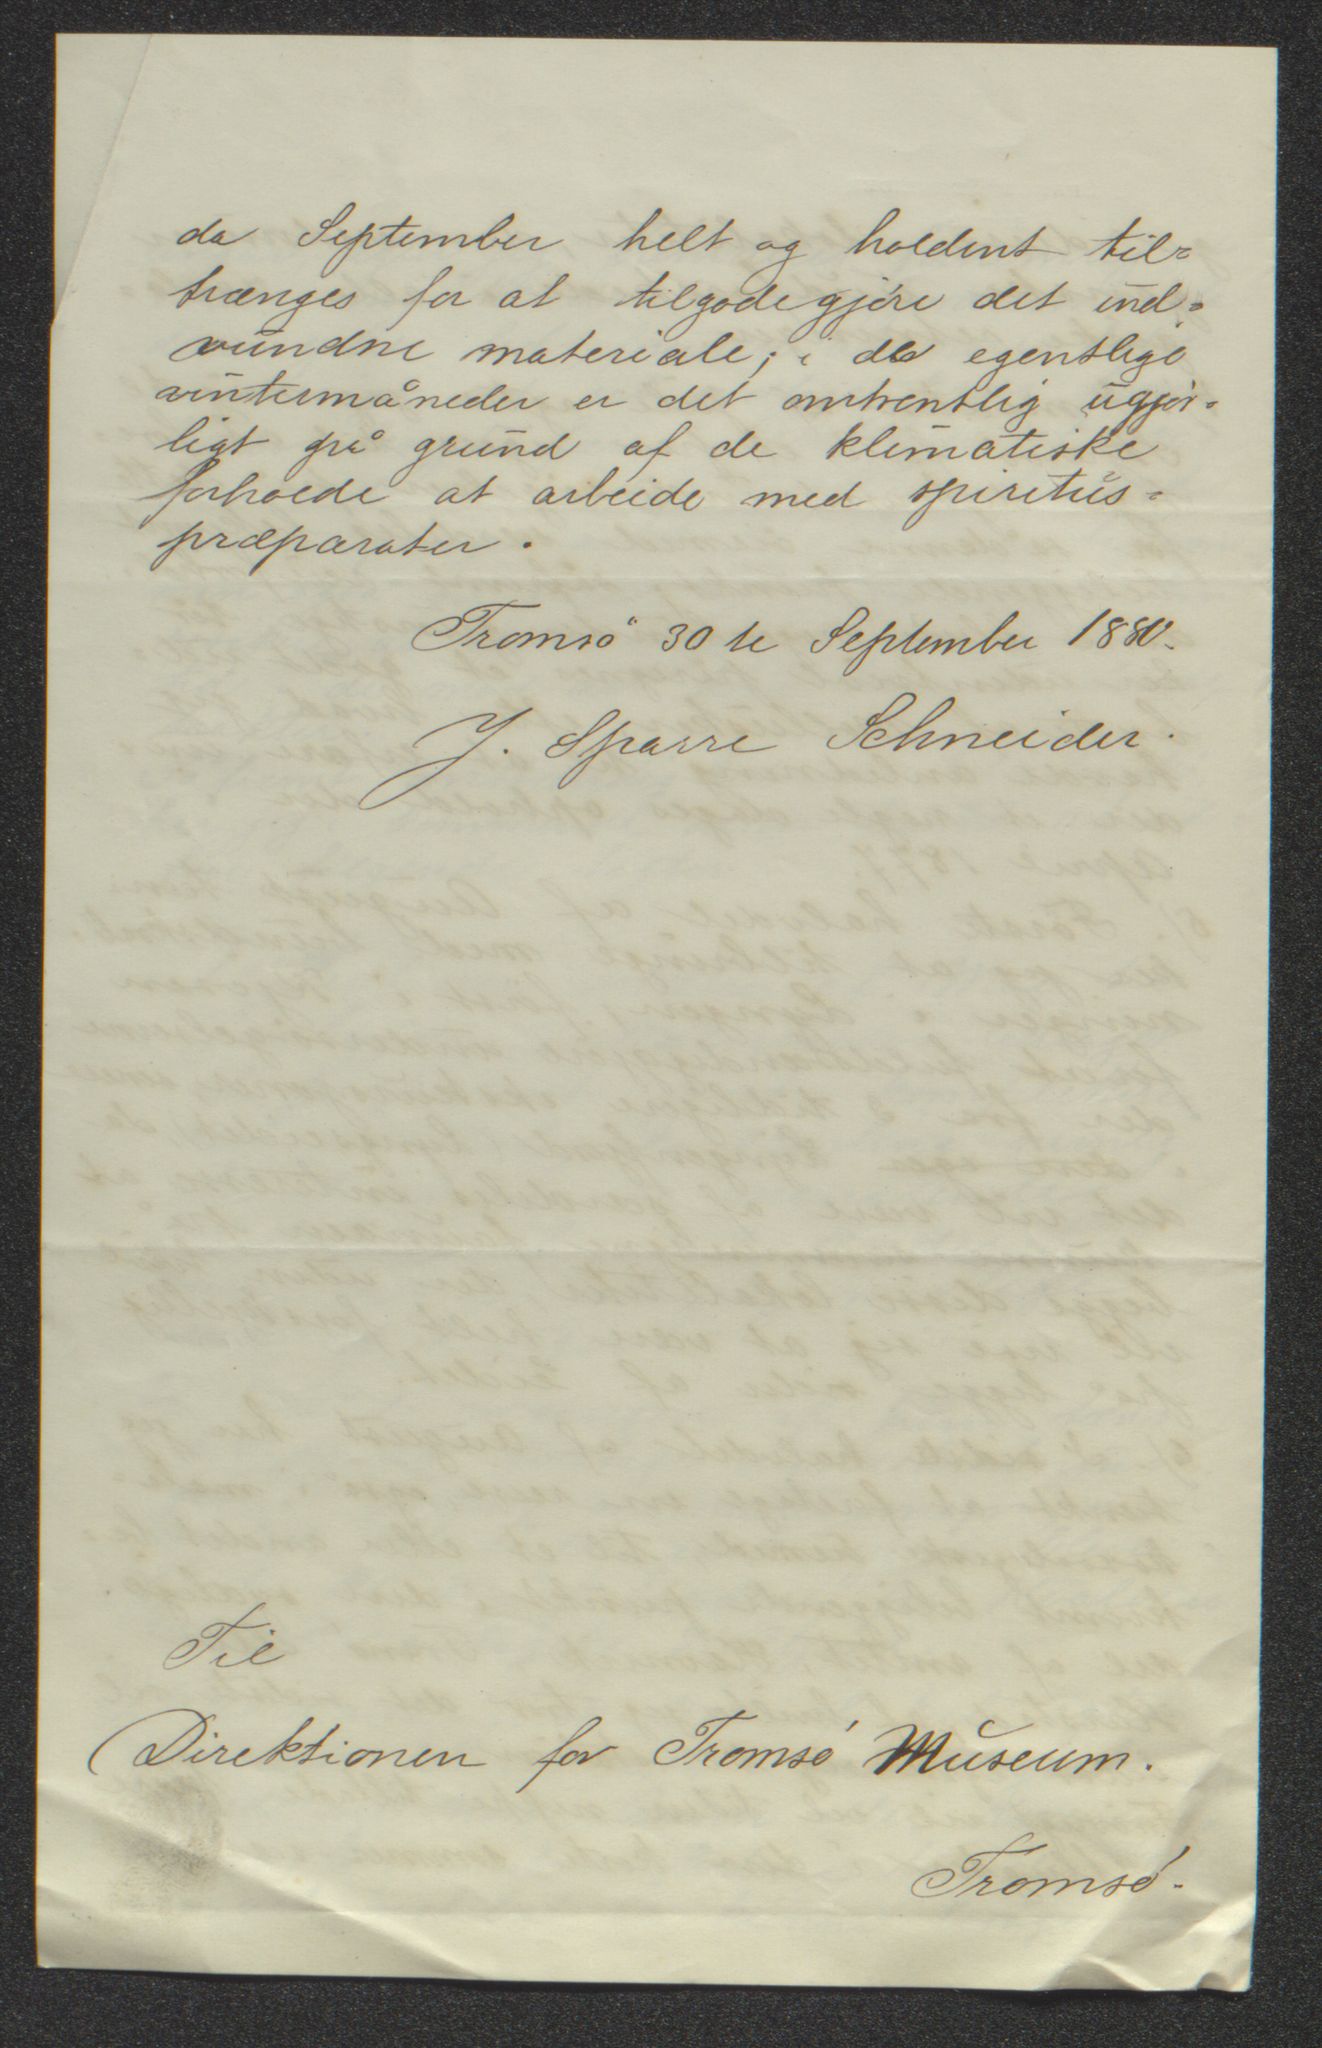 da September helt og holdent til=
trænges for at tilgodegjöre det ind=
vundne materiale; i de egentlige
vintermåneder er det omtrentlig ugjör=
ligt på grund af de klimatiske
forholde at arbeide med spiritus=
præparater.
Tromsö 30te September 1880.
J. Sparre Schneider.
Til
Direktionen for Tromsö Museum.
Tromsö.